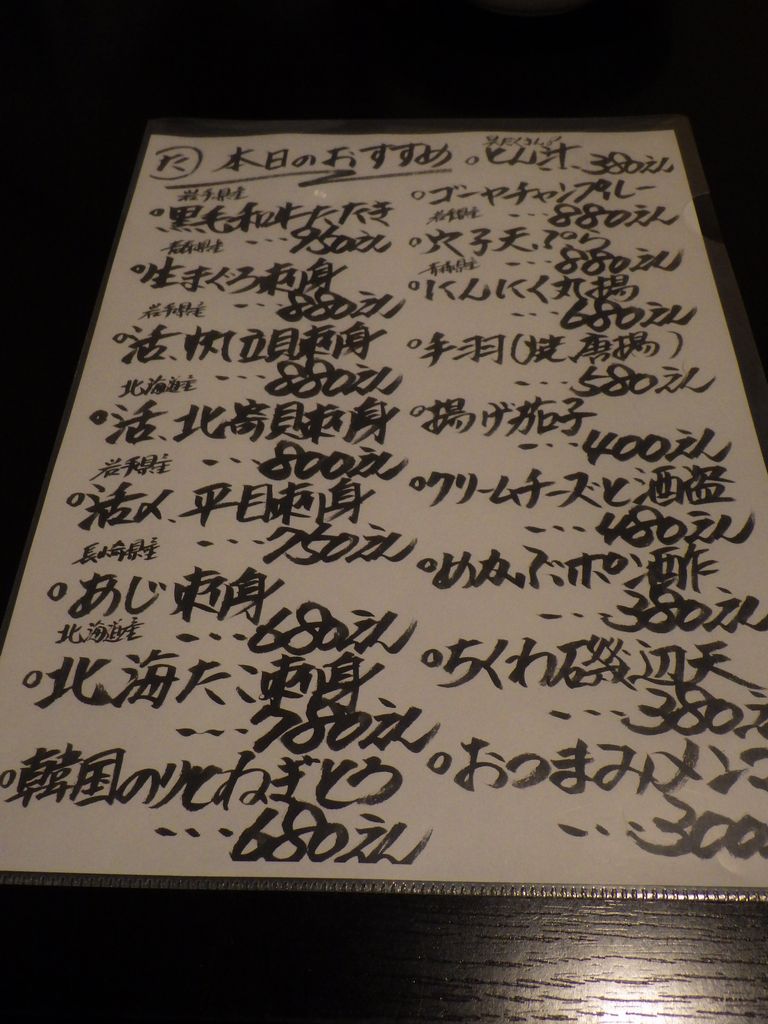 た 本日のおすすめ
岩手県産
黒毛和牛たたき
・・・950えん
青森県産
生まぐろ刺身
・・・880えん
岩手県産
活帆立貝刺身
・・・880えん
北海道産
活北寄貝刺身
・・・800えん
岩手県産
活〆平目刺身
・・・750えん
長崎県産
あじ刺身
・・・680えん
北海道産
北海たこ刺身
・・・780えん
韓国のりとねぎとろ
・・・680えん
とん汁 380えん
ゴーヤチャンプルー
・・・880えん
岩手県産
穴子天ぷら
・・・880えん
青森県産
にんにく丸揚
・・・680えん
手羽(焼、唐揚)
・・・580えん
揚げ茄子
・・・400えん
クリームチーズと酒盗
・・・480えん
めかぶポン酢
・・・380えん
ちくわ磯辺天
・・・380え
おつまみメン
・・・300